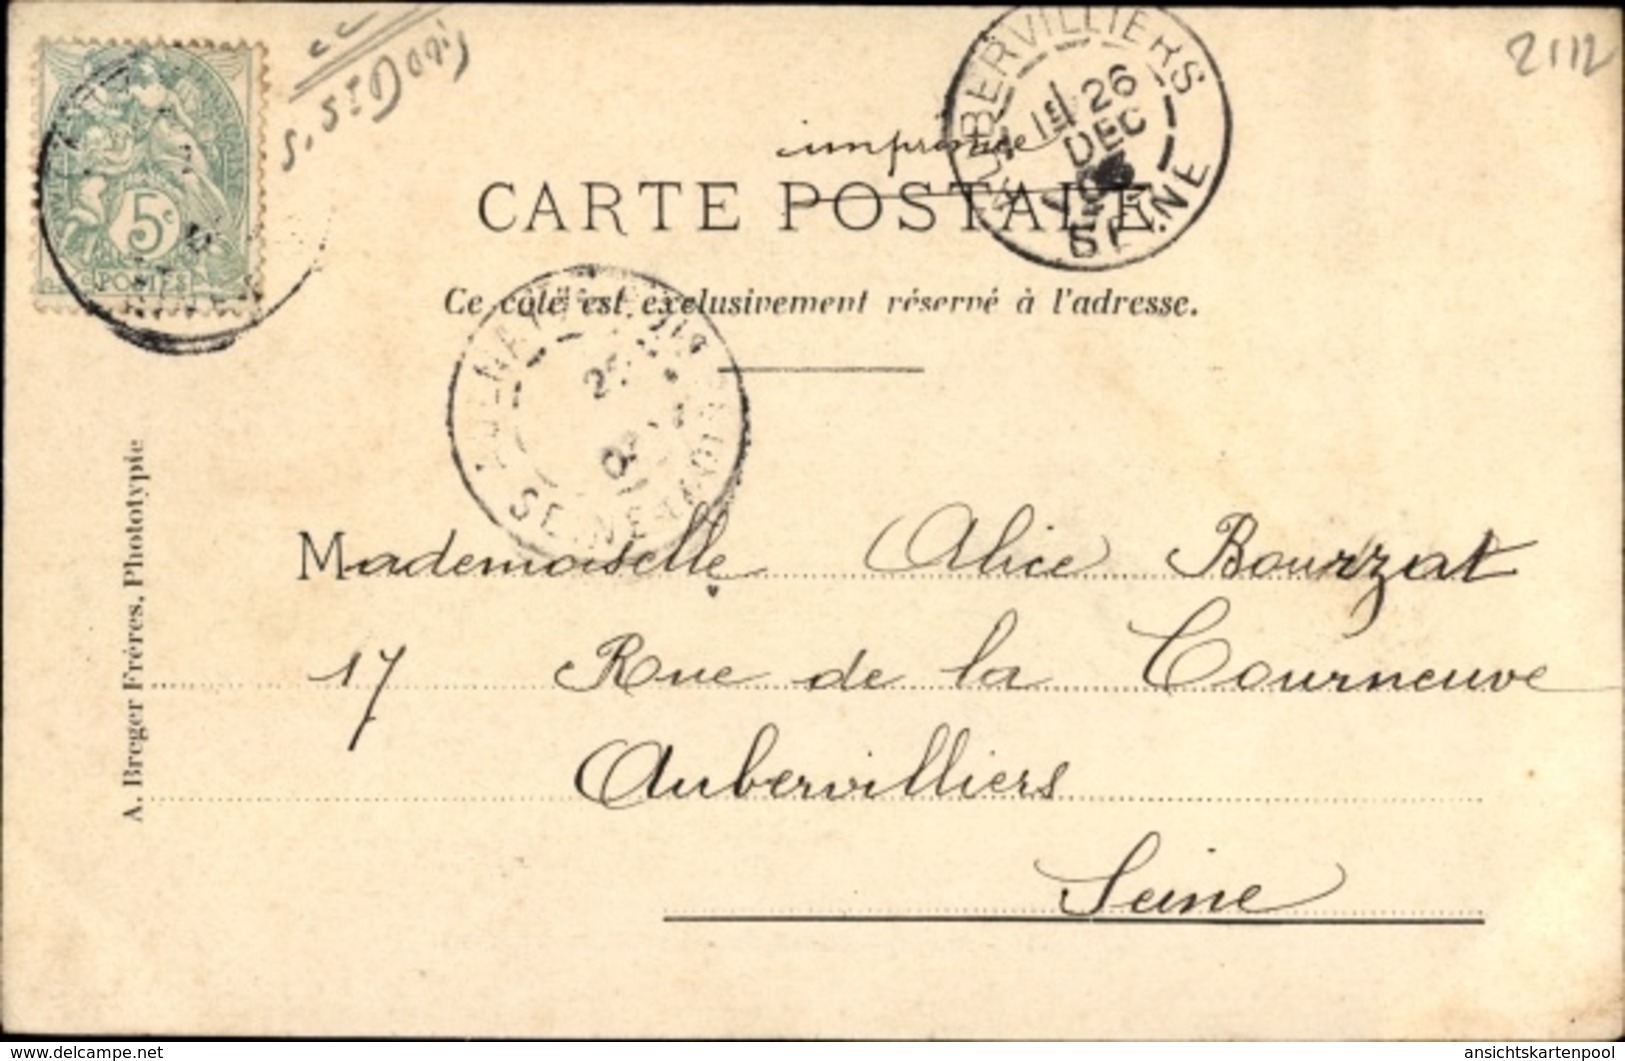 S. St Denis
2112
5c
POSTES
AUBERVILLIERS
26
DEC
SEINE
imprimé
CARTE POSTALE
Ce côté est exclusivement réservé à l'adresse.
SEINE
A. Breger Frères, Phototypie
Mademoiselle Alice Bourzat
17 Rue de la Courneuve
Aubervilliers
Seine
www.delcampe.net
ansichtskartenpool